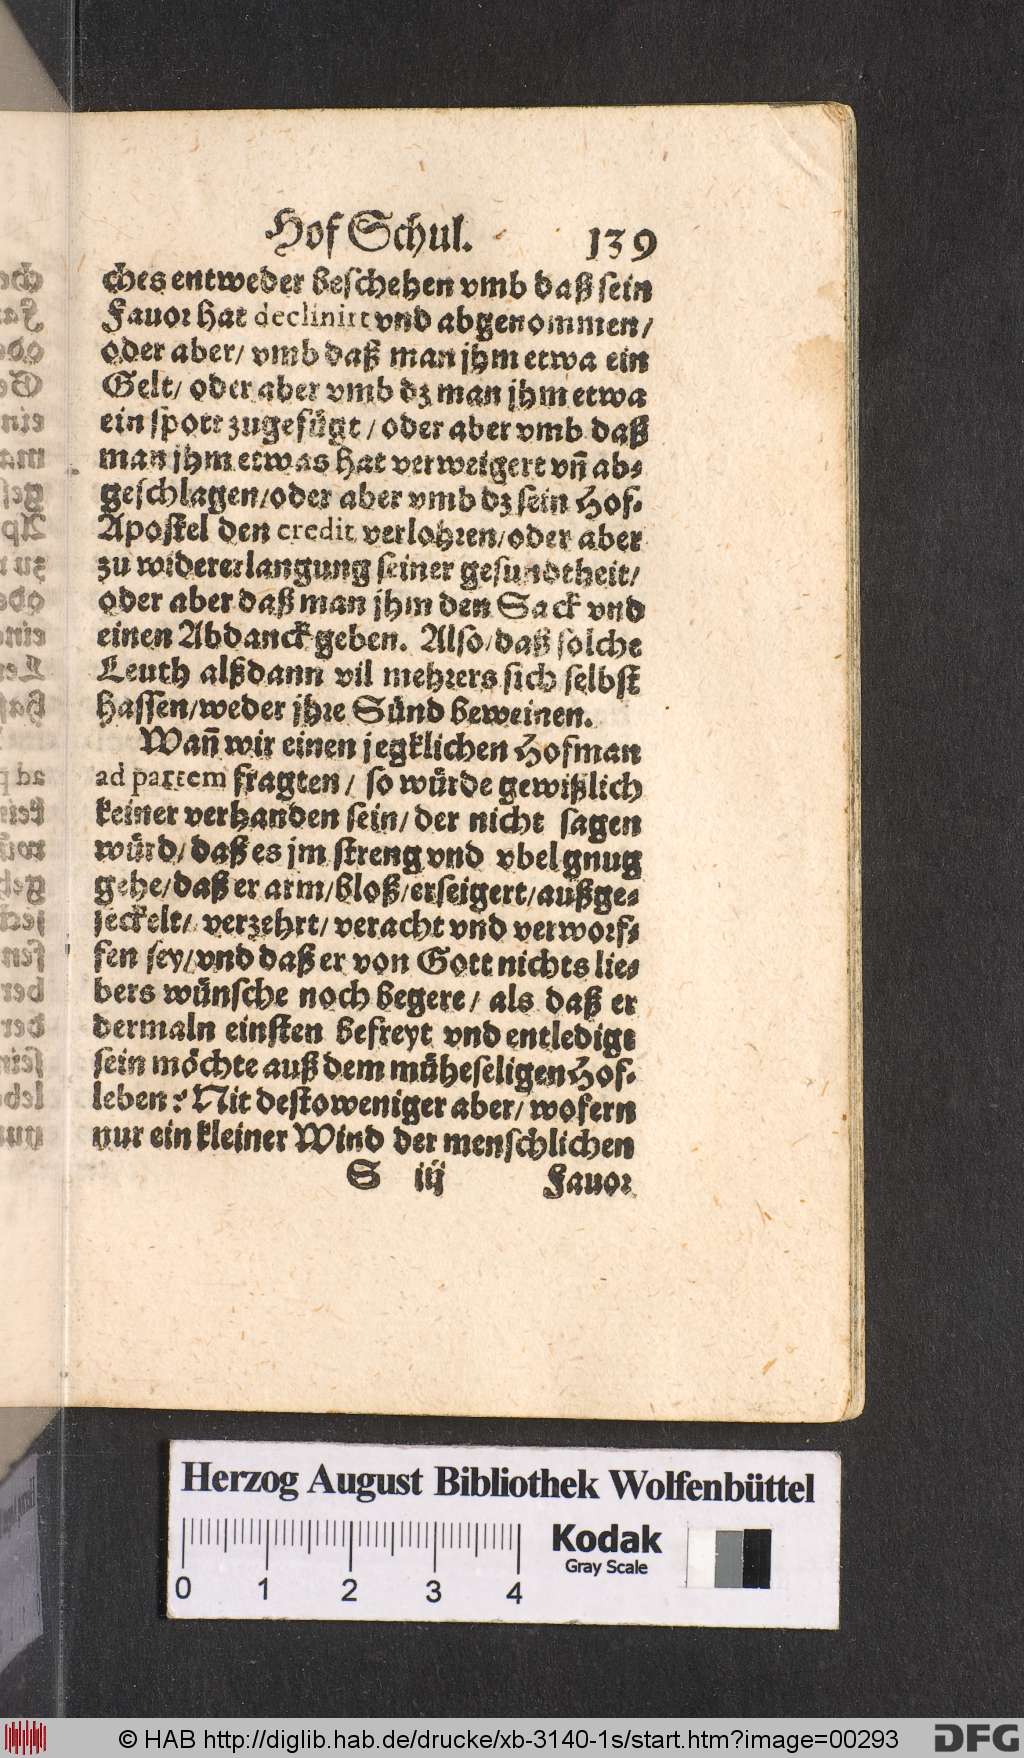 Hof Schul. 139
ches entweder beschehen vmb daß sein
Fauor hat declinirt vnd abgenommen/
oder aber/ vmb daß man jhm etwa ein
Gelt/ oder aber vmb dz man jhm etwa
ein spott zugefügt / oder aber vmb daß
man jhm etwas hat verweigert vñ ab-
geschlagen/oder aber vmb dz sein Hof-
Apostel den credit verlohren/oder aber
zu widererlangung seiner gesundtheit/
oder aber daß man jhm den Sack vnd
einen Abdanck geben. Also/daß solche
Leuth alßdann vil mehrers sich selbst
hassen/weder jhre Sünd beweinen.
Wañ wir einen jegklichen Hofman
ad partem fragten / so würde gewißlich
keiner verhanden sein/ der nicht sagen
würd/daß es jm streng vnd vbel gnug
gehe/daß er arm/bloß/erseigert/außge-
jeckelt/ verzehrt/ veracht vnd verworf-
fen sey/vnd daß er von Gott nichts lie-
bers wünsche noch begere/ als daß er
dermaln einsten befreyt vnd entledigt
sein möchte auß dem müheseligen Hof-
leben? Nit destoweniger aber/ wofern
nur ein kleiner Wind der menschlichen
S iij Fauor
Herzog August Bibliothek Wolfenbüttel
Kodak
Gray Scale
0 1 2 3 4
© HAB http://diglib.hab.de/drucke/xb-3140-1s/start.htm?image=00293
DFG